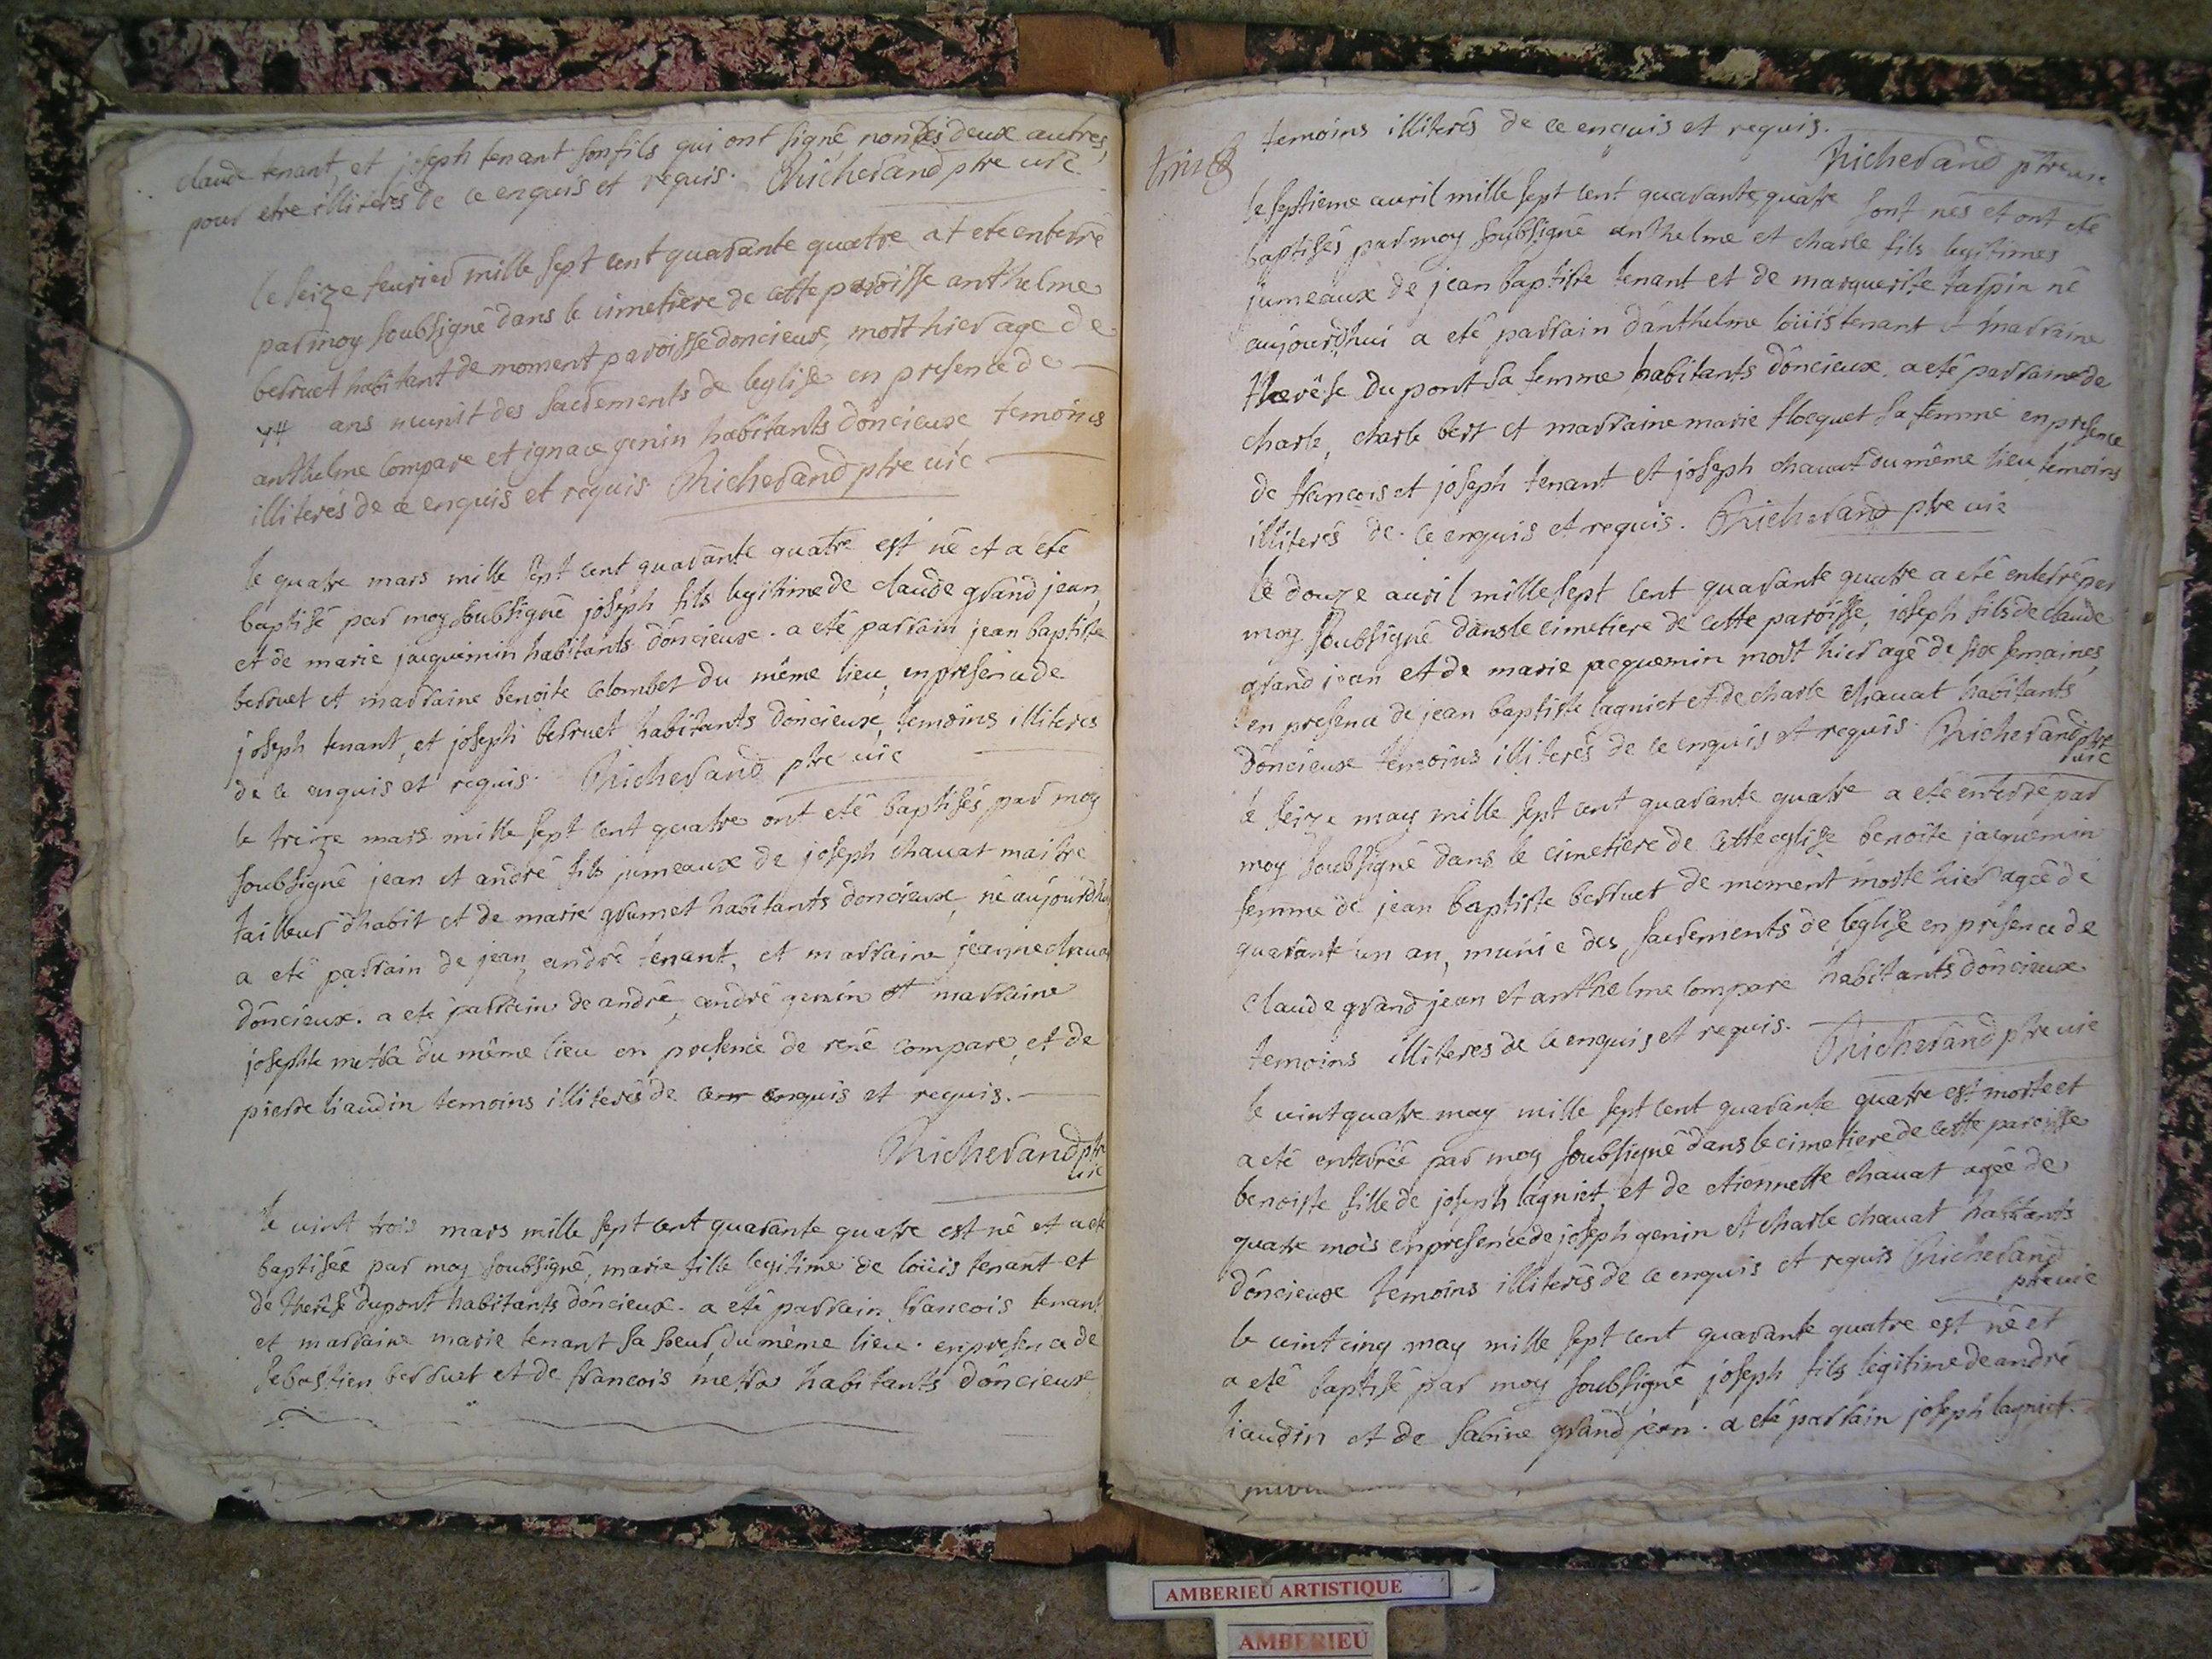 claude tenant, et joseph tenant son fils qui ont signé non les deux autres,
pour etre illiterés de ce enquis et requis. Richerand ptre vic
le seize feurier mille sept cent quarante quatre at ete enterré
par moy soubsigné dans le cimetiere de cette paroisse anthelme
berruet habitant de moment paroisse doncieux, mort hier age de
ans muunit des sacrements de leglise en presence de
anthelme compare et ignace genin habitants dôncieux temoins
illiterés de ce enquis et requis Richerand ptre vic
le quatre mars mille sept cent quarante quatre est né et a eté
baptisé par moy soubsigné joseph fils legitime de claude grand jean,
et de marie jacquemin habitants dôncieux. a eté parrain jean baptiste
berruet et marraine benoite colombet du même lieu, en presence de
joseph tenant, et joseph berruet habitants dôncieux, temoins illiteres
de ce enquis et requis. Richerand ptre vic
le treize mars mille sept cent quatre ont eté baptisés par moy
soubsigné jean et andré fils jumeaux de joseph chauat maitre
tailleur dhabit et de marie grumet habitants doncieux, né aujourdhuy
a eté parrain de jean, andré tenant, et marraine jeanne chauat
dôncieux. a eté parrain de andré, andré genin et marraine
josephte metra du même lieu en presence de rené compare, et de
pierre liaudin temoins illiterés de ce enquis et requis.
Richerand ptre
vic
le vint trois mars mille sept cent quarante quatre est né et a eté
baptisée par moy soubsigné, marie fille legitime de loüis tenant et
de therése dupont habitants dôncieux. a eté parrain francois tenant
et marraine marie tenant sa soeur, du même lieu. en presence de
sebastien berruet et de francois metra habitants dôncieux
temoins illiterés de ce enquis et requis.
Richerand ptre vic
le septieme auril mille sept cent quarante quatre sont nés et ont eté
baptisés par moy soubsigné anthelme et charle fils legitimes
jumeaux de jean baptiste tenant et de marguerite tarpin né
aujourdhui a eté parrain danthelme loüis tenant et marraine
therése dupont sa femme habitants dôncieux. a eté parrain de
charle, charle bert et marraine marie floquet sa femme en presence
de francois et joseph tenant et joseph chauat du même lieu temoins
illiterés de ce enquis et requis. Richerand ptre vic
le douze auril mille sept cent quarante quatre a eté enterré par
moy soubsigné dans le cimetiere de cette paroisse, joseph fils de claude
grand jean et de marie jacquemin mort hier agé de six semaines,
en presence de jean baptiste lagniet et de charle chauat habitants
dôncieux temoins illiterés de ce enquis et requis. Richerand ptre
vic
le seize may mille sept cent quarante quatre a eté enterré par
moy soubsigné dans le cimetiere de cette eglise benoite jacquemin
femme de jean baptiste berruet de moment morte hier agée de
quarante un an, munie des sacrements de léglise en presence de
claude grand jean et anthelme compare habitants dôncieux
temoins illiteres de ce enquis et requis. Richerand ptre vic
le vint quatre may mille sept cent quarante quatre est morte et
a eté enterrée par moy soubsigné dans le cimetiere de cette paroisse
benoiste fille de joseph lagniet, et de etiennette chauat agée de
quatre mois en presence de joseph genin et charle chauat habitants
dôncieux temoins illiterés de ce enquis et requis Richerand
ptre vic
le vint cinq may mille sept cent quarante quatre est né et
a eté baptisé par moy soubsigné joseph fils legitime de andré
liaudin et de sabine grand jean. a eté parrain joseph lagniet.
AMBERIEU ARTISTIQUE
AMBERIEU